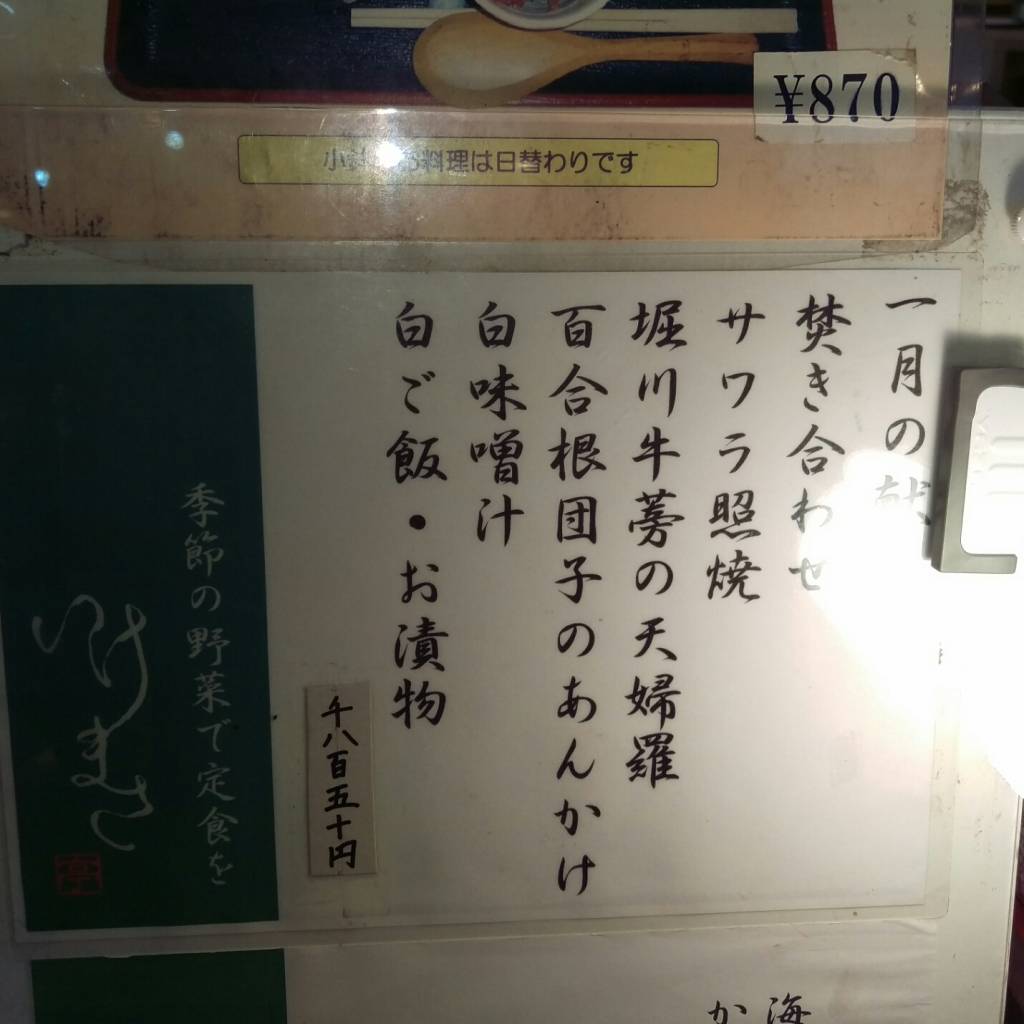 ¥870
料理は日替わりです
一月の献
焚き合わせ
サワラ照焼
堀川牛蒡の天婦羅
百合根団子のあんかけ
白味噌汁
白ご飯・お漬物
千八百五十円
季節の野菜で定食を
海
か